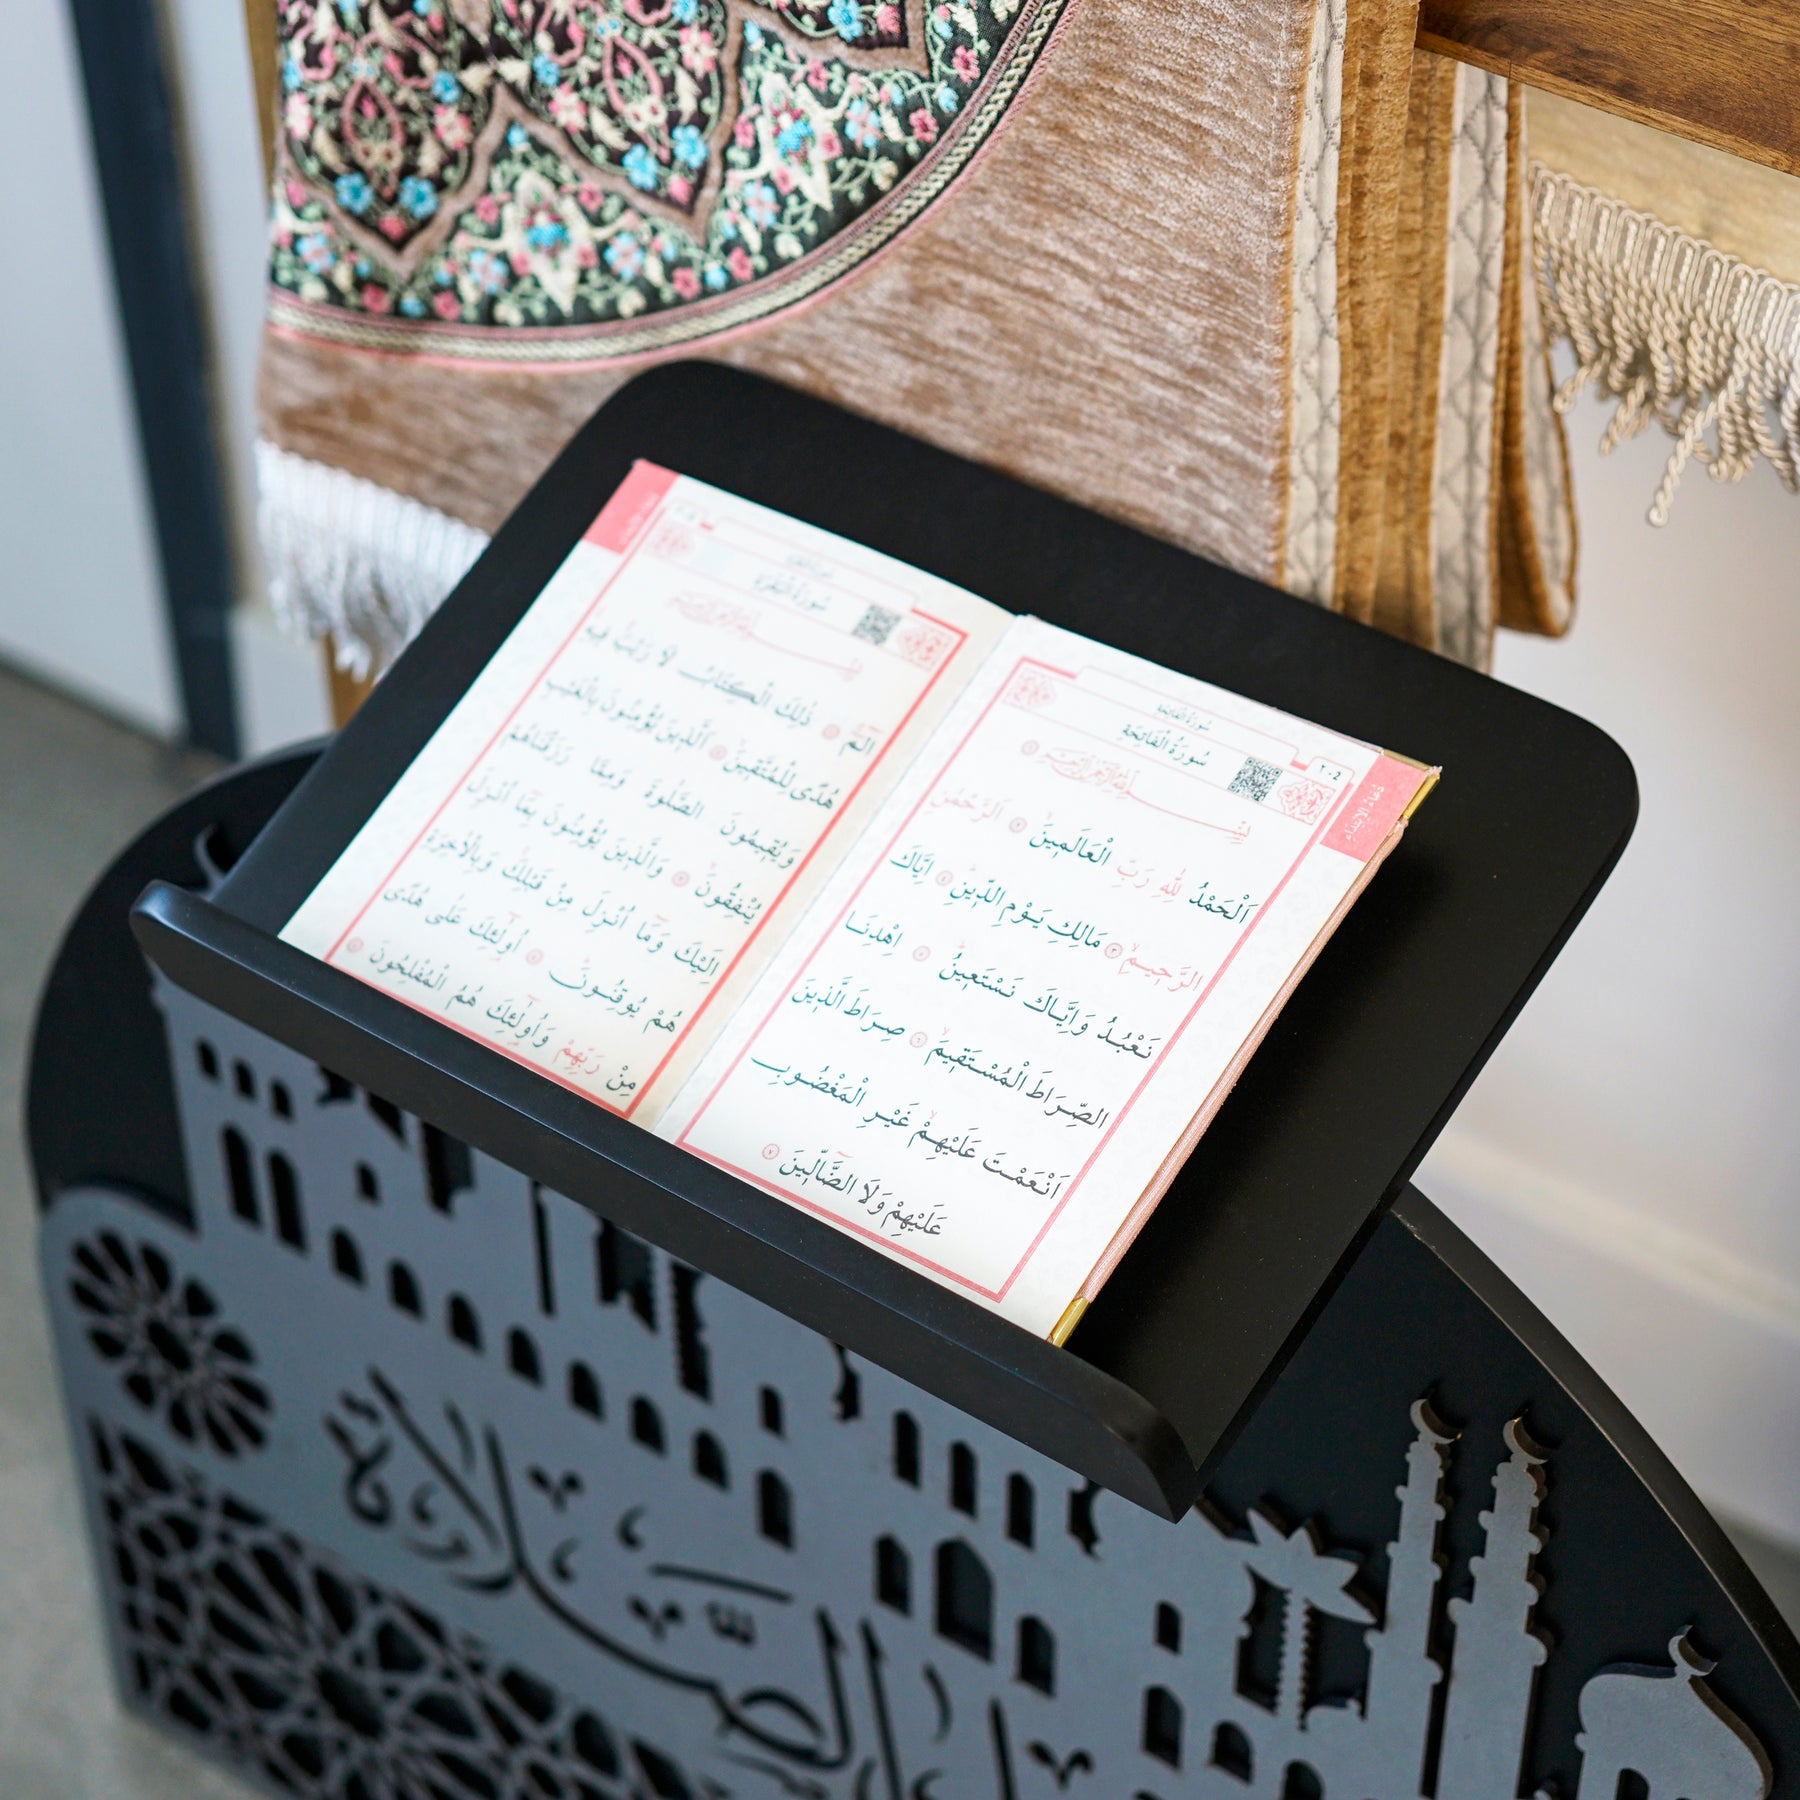 سُورَةُ الْفَاتِحَةِ
٢٠٤
دُعَاءُ الِابْتِدَاءِ
سُورَةُ الْفَاتِحَةِ
اَلْحَمْدُ لِلّٰهِ رَبِّ الْعَالَمِينَ ٢ اَلرَّحْمٰنِ
الرَّحِيمِ ٣ مَالِكِ يَوْمِ الدِّينِ ٤ اِيَّاكَ
نَعْبُدُ وَاِيَّاكَ نَسْتَعِينُ ٥ اِهْدِنَا
الصِّرَاطَ الْمُسْتَقِيمَ ٦ صِرَاطَ الَّذِينَ
اَنْعَمْتَ عَلَيْهِمْ غَيْرِ الْمَغْضُوبِ
عَلَيْهِمْ وَلَا الضَّالِّينَ ٧
سُورَةُ الْبَقَرَةِ
الٓمٓ ١ ذٰلِكَ الْكِتَابُ لَا رَيْبَ فِيهِ
هُدًى لِلْمُتَّقِينَ ٢ اَلَّذِينَ يُؤْمِنُونَ بِالْغَيْبِ
وَيُقِيمُونَ الصَّلٰوةَ وَمِمَّا رَزَقْنَاهُمْ
يُنْفِقُونَ ٣ وَالَّذِينَ يُؤْمِنُونَ بِمَا اُنْزِلَ
اِلَيْكَ وَمَا اُنْزِلَ مِنْ قَبْلِكَ وَبِالْاٰخِرَةِ
هُمْ يُوقِنُونَ ٤ اُولٰئِكَ عَلٰى هُدًى
مِنْ رَبِّهِمْ وَاُولٰئِكَ هُمُ الْمُفْلِحُونَ ٥